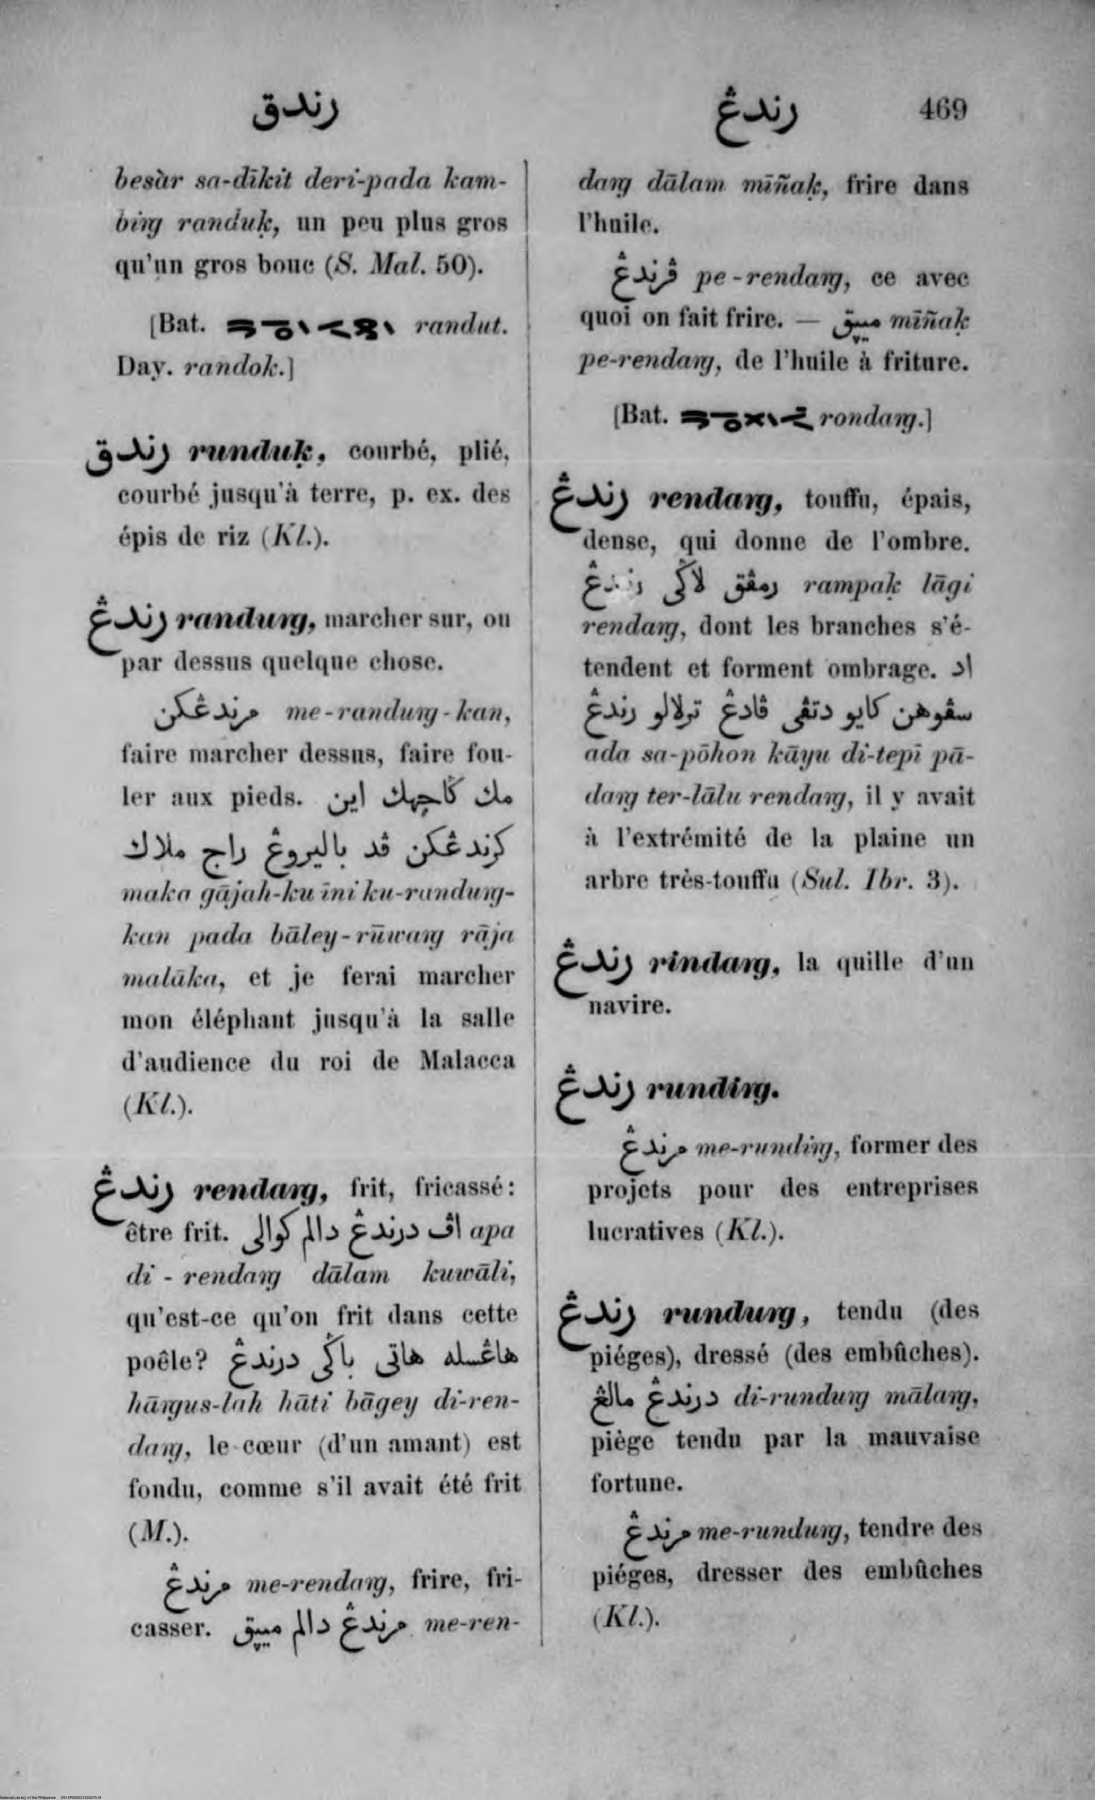 رندق
رندڠ
469
besàr sa-dīkit deri-pada kam-
biŋ randuḳ, un peu plus gros
qu'un gros bouc (S. Mal. 50).
[Bat. randut.
Day. randok.]
رندق runduḳ, courbé, plié,
courbé jusqu'à terre, p. ex. des
épis de riz (Kl.).
رندڠ randuŋ, marcher sur, ou
par dessus quelque chose.
مرندڠكن me-randuŋ-kan,
faire marcher dessus, faire fou-
ler aux pieds. مك ݢاجهك اين
كرندڠكن ڤد باليروڠ راج ملاك
maka gājah-ku īni ku-randuŋ-
kan pada bāley-rūwaŋ rāja
malāka, et je ferai marcher
mon éléphant jusqu'à la salle
d'audience du roi de Malacca
(Kl.).
رندڠ rendaŋ, frit, fricassé:
être frit. اڤ درندڠ دالم كوالى apa
di - rendaŋ dālam kuwāli,
qu'est-ce qu'on frit dans cette
poêle? هاڠسله هاتى باݢى درندڠ
hāŋgus-lah hāti bāgey di-ren-
daŋ, le cœur (d'un amant) est
fondu, comme s'il avait été frit
(M.).
مرندڠ me-rendaŋ, frire, fri-
casser. مرندڠ دالم ميڽق me-ren-
daŋ dālam mīñaḳ, frire dans
l'huile.
ڤرندڠ pe-rendaŋ, ce avec
quoi on fait frire. — ميڽق mīñaḳ
pe-rendaŋ, de l'huile à friture.
[Bat. rondaŋ.]
رندڠ rendaŋ, touffu, épais,
dense, qui donne de l'ombre.
رمڤق لاݢى رندڠ rampaḳ lāgi
rendaŋ, dont les branches s'é-
tendent et forment ombrage. اد
سڤوهن كايو دتڤى ڤادڠ ترلالو رندڠ
ada sa-pōhon kāyu di-tepī pā-
daŋ ter-lālu rendaŋ, il y avait
à l'extrémité de la plaine un
arbre très-touffu (Sul. Ibr. 3).
رندڠ rindaŋ, la quille d'un
navire.
رندڠ rundiŋ.
مرندڠ me-rundiŋ, former des
projets pour des entreprises
lucratives (Kl.).
رندڠ runduŋ, tendu (des
piéges), dressé (des embûches).
درندڠ مالڠ di-runduŋ mālaŋ,
piège tendu par la mauvaise
fortune.
مرندڠ me-runduŋ, tendre des
piéges, dresser des embûches
(Kl.).